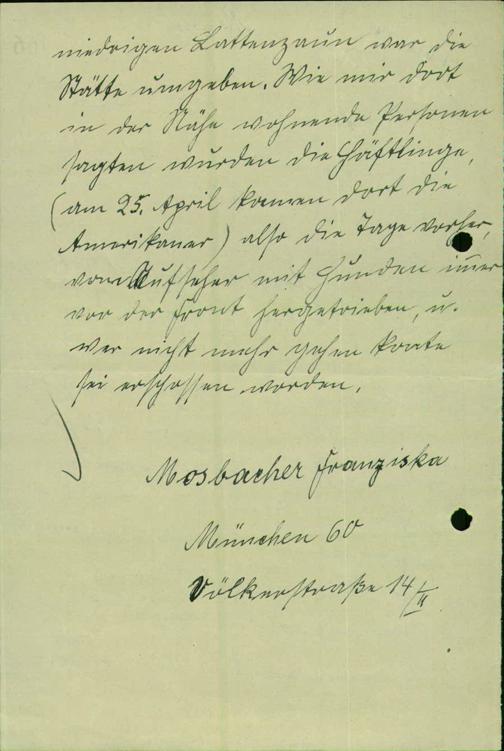 niedrigen Lattenzaun war die
Stätte umgeben. Wie mir dort
in der Nähe wohnende Personen
sagten wurden die Häftlinge,
(am 25. April kamen dort die
Amerikaner) also die Tage vorher,
vom Aufseher mit Hunden immer
vor der Front hergetrieben, u.
wer nicht mehr gehen konte
sei erschossen worden.
Mosbacher Franziska
München 60
Völkerstraße 14 I/II